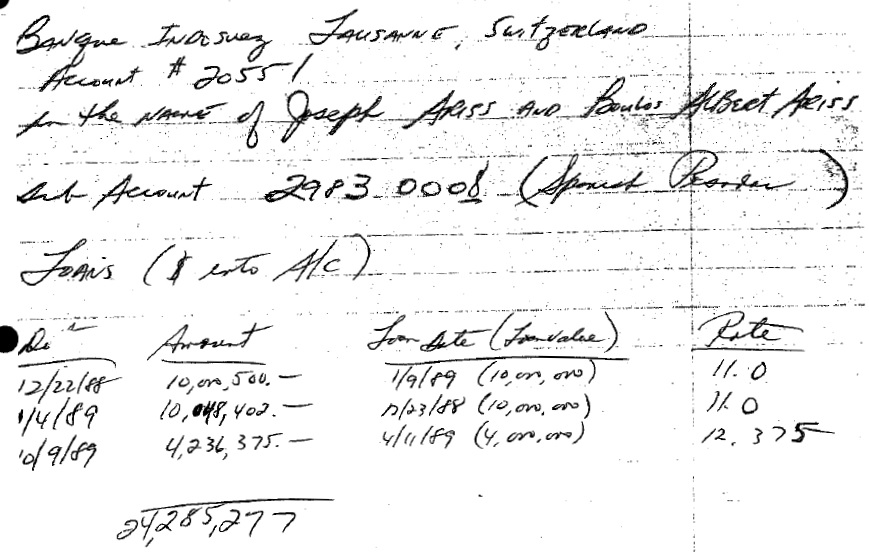 Banque Indosuez Lausanne, Switzerland
Account # 20551
In the name of Joseph Ariss and Boulos Albert Ariss
Sub Account 2983 0008 (Spanish Pesetas)
Loans ($ into A/C)
Amount Loan Date (Loan value) Rate
12/22/88 10,000,500.— 1/9/89 (10,000,000) 11.0
1/4/89 10,048,402.— 12/23/88 (10,000,000) 11.0
10/9/89 4,236,375.— 4/11/89 (4,000,000) 12.375
24,285,277